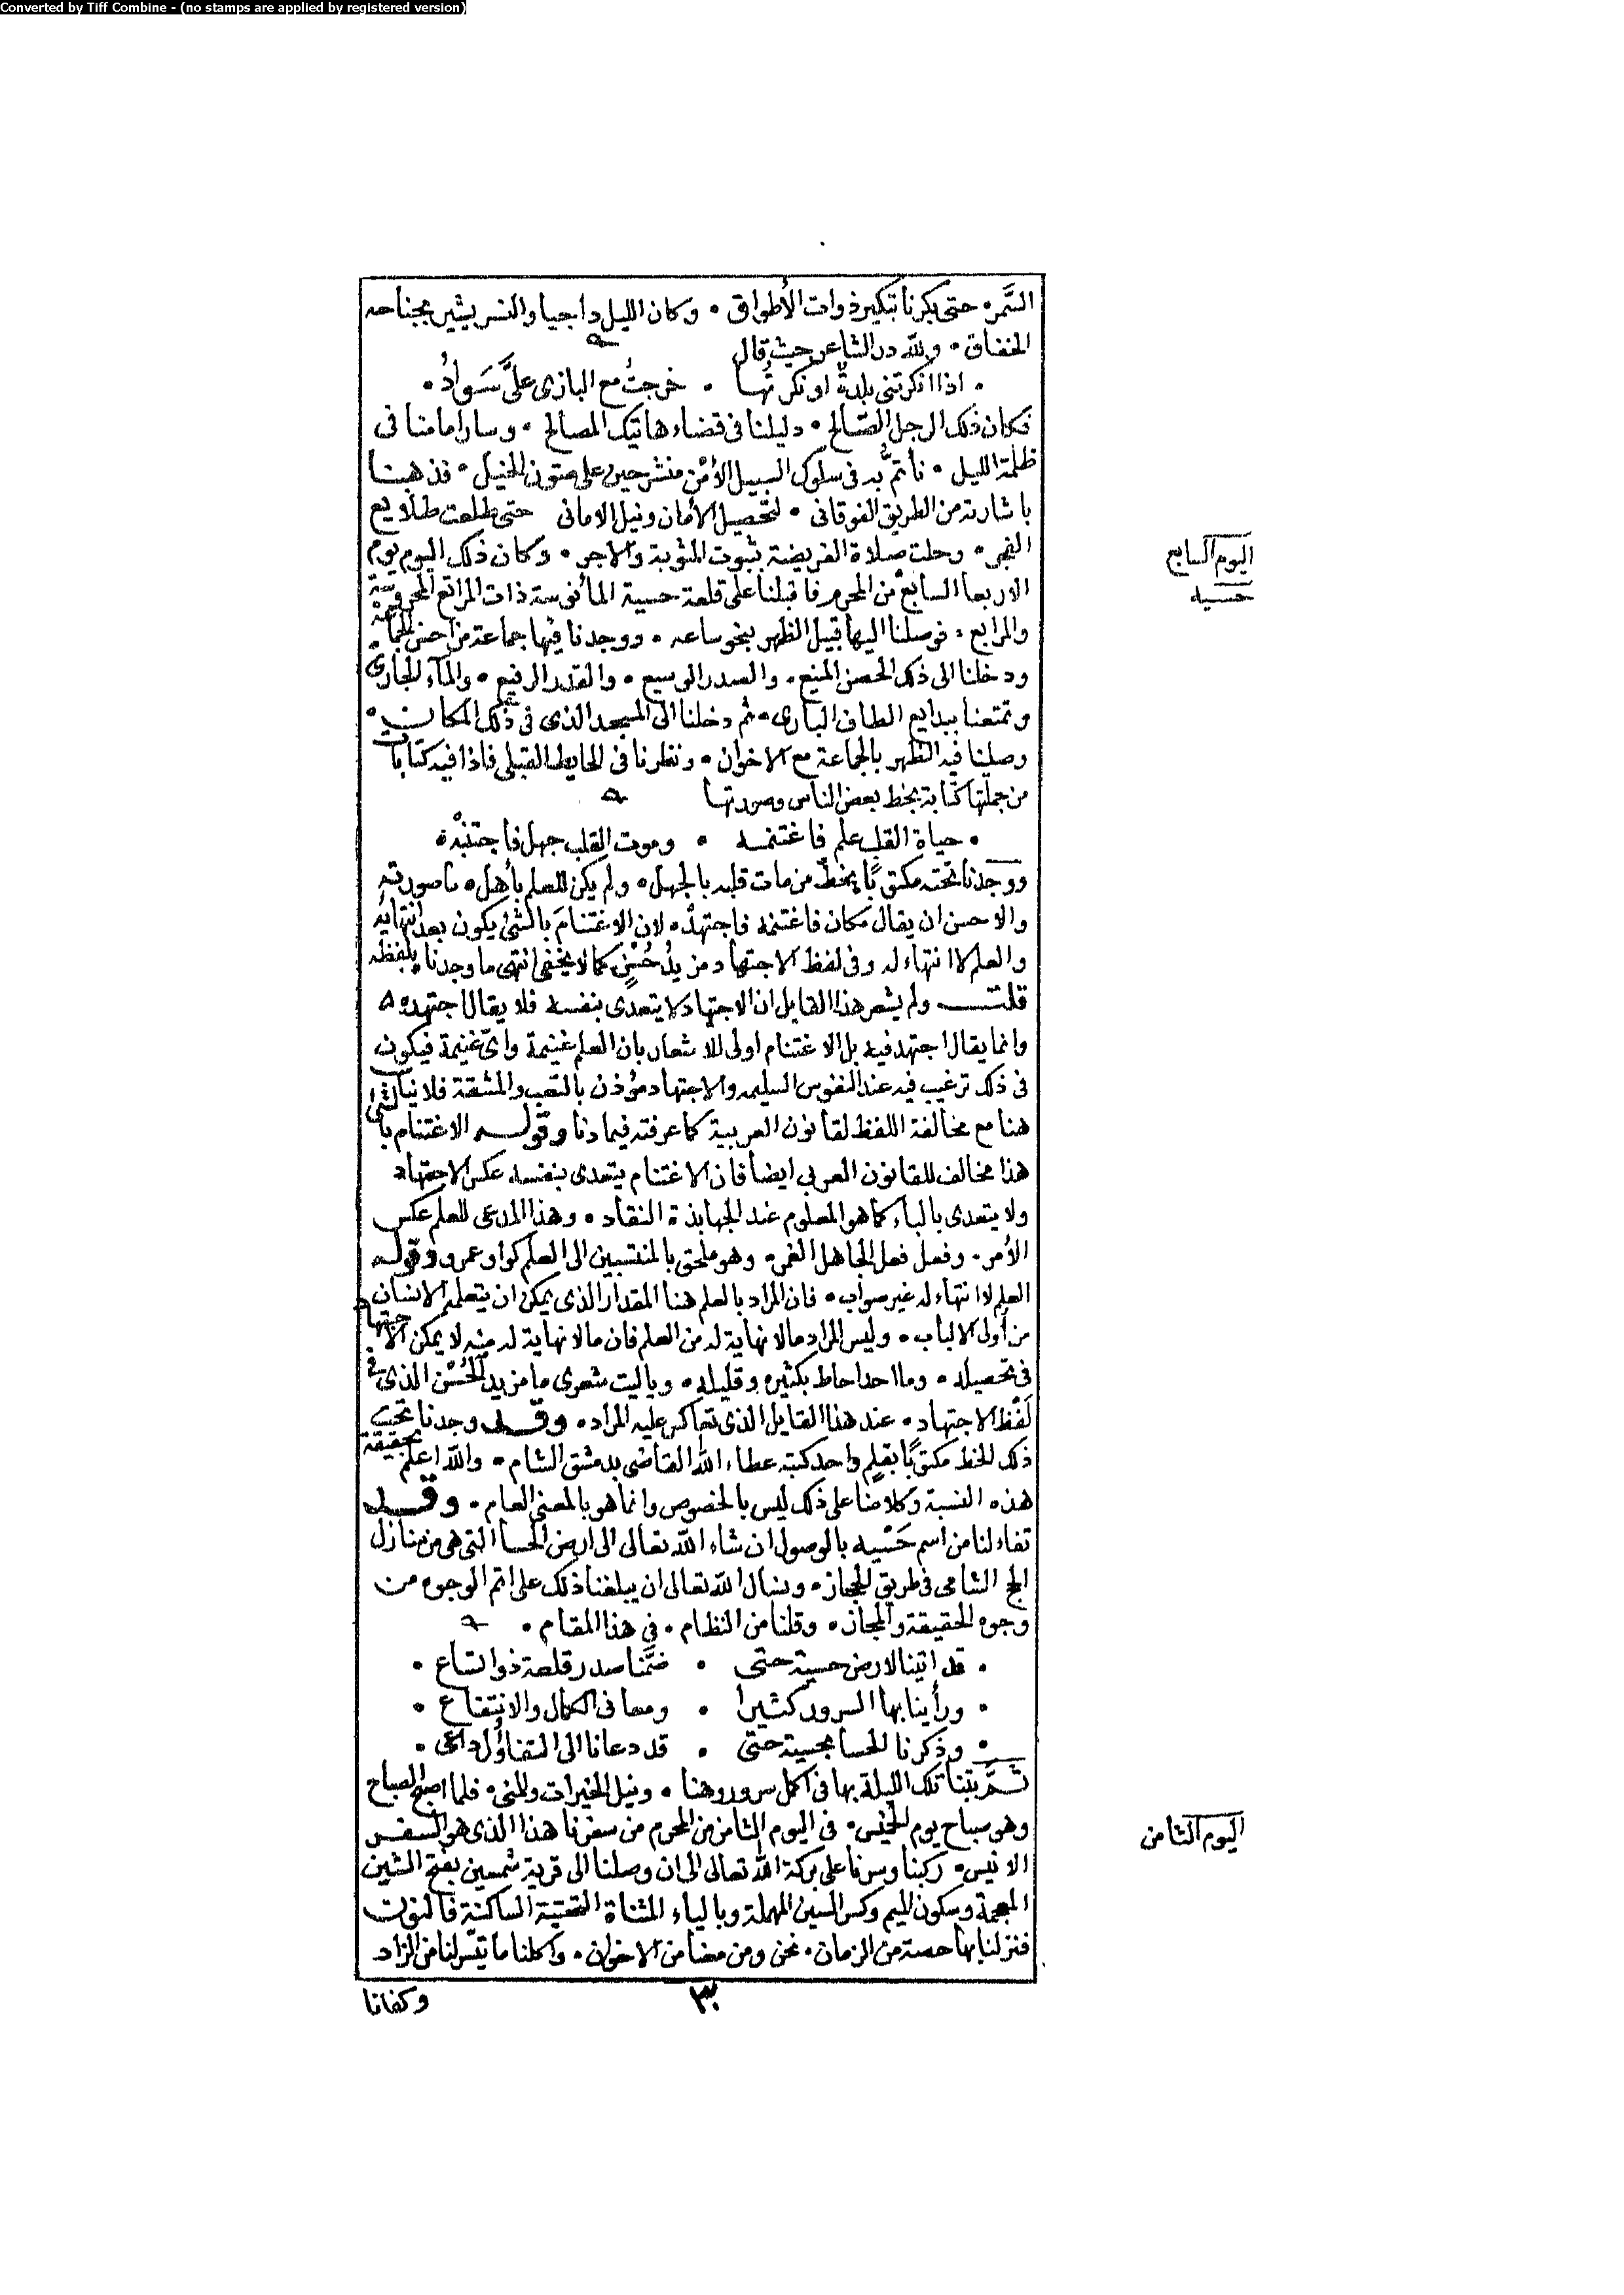 Converted by Tiff Combine - (no stamps are applied by registered version)
السَّمر۰ حتى بكرنا تبكير ذوات الأطواق ۰ وكان الليل داجيا والنسر يشير بجناحه
الخفاق ۰ ولله در الشاعر حيث قال
۰ اذا انكرتني بلدةٌ او نكرتُها ۰ خرجتُ مع البازى علىَّ سَوادُ ۰
فكان ذلك الرجل الصّالح ۰ دليلنا فى قضاء هاتيك المصالح ۰ وسار امامنا فى
ظلمة الليل ۰ نأتمُّ به فى سلوك السبيل الأمْن منشرحين على متون الخيل ۰ فذهبنا
باشارته من الطريق الفوقانى ۰ لتحصيل الأمان ونيل الامانى حتى طلعت طلايع
الفجر ۰ وحلت صلاة الفريضة بثبوت المثوبة والاجر ۰ وكان ذلك اليوم يوم
اليوم السابع
الاربعا السابع من المحرم فاقبلنا على قلعة حسية المأنوسة ذات المراتع المحروسة
حسيه
والمرابع ۰ فوصلنا اليها قبيل الظهر بنحو ساعه ۰ ووجدنا فيها جماعة من احسن الجماعة
ودخلنا الى ذلك الحصن المنيع ۰ والصدر الوسيع ۰ والقدر الرفيع ۰ والمآء الجارى
وتمتعنا ببدايع الطاف البارى ۰ ثم دخلنا الى المسجد الذى فى ذلك المكان ۰
وصلينا فيه الظهر بالجماعة مع الاخوان ۰ ونظرنا فى الحايط القبلى فاذا فيه كتابات
من جملتها كتابة بخط بعض الناس وصورتها
۰ حياة القلب علم فاغتنمه ۰ وموت القلب جهل فاجتنبْه ۰
ووجدنا تحته مكتوبًا بخطّ من مات قلبه بالجهل ۰ ولم يكن للعلم بأهل ۰ ما صورته
والاحسن ان يقال مكان فاغتنمه فاجتهدْه لان الاغتنامَ بالشئ يكون بعد انتهايه
والعلم لا انتهاء له وفى لفظ الاجتهاد مزيدُ حُسْنٍ كما لا يخفى انتهى ما وجدناه بلفظه
قلت ولم يشعر هذا القايل ان الاجتهاد لا يتعدى بنفسه فلا يقال اجتهده
وانما يقال اجتهد فيه بل الاغتنام اولى للاشعار بان العلم غنيمة واىّ غنيمة فيكون
فى ذلك ترغيب فيه عند النفوس السليمه والاجتهاد مؤذن بالتعب والمشقة فلا يناسب
هنا مع مخالفة اللفظ لقانون العربية كما عرفته فيما دنا وقوله الاغتنام بالشئ
هذا مخالف للقانون العربى ايضا فان الاغتنام يتعدى بنفسه عكس الاجتهاد
ولا يتعدى بالباء كما هو المعلوم عند الجهابذة النقاد ۰ وهذا المدعى للعلم عكس
الأمر ۰ وفعل فعل الجاهل الغمر ۰ وهو ملحق بالمنتسبين الى العلم كواو عمرو وقوله
العلم لا انتهاء له غير صواب ۰ فان المراد بالعلم هنا المقدار الذى يمكن ان يتعلمه الانسان
من أولى الالباب ۰ وليس المراد ما لا نهاية له من العلم فان ما لا نهاية له منه لا يمكن الاجتهاد
فى تحصيله ۰ وما احد احاط بكثيره وقليله ۰ ويا ليت شعرى ما مزيد الحُسْن الذى فى
لَفْظ الاجتهاد ۰ عند هذا القايل الذى تعاكس عليه المراد ۰ وقد وجدنا تحت
ذلك الخط مكتوبًا بقلمٍ واحد كتبه عطاء الله القاضى بدمشق الشام ۰ والله اعلم بحقيقة
هذه النسبة وكلامنا على ذلك ليس بالخصوص وانما هو بالمعنى العام ۰ وقد
تفاءلنا من اسم حَسْيه بالوصول ان شاء الله تعالى الى ارض الحسا التى هى من منازل
الحج الشامى فى طريق الحجاز ۰ ونسأل الله تعالى ان يبلغنا ذلك على اتم الوجوه من
وجوه الحقيقة والمجاز ۰ وقلنا من النظام ۰ فى هذا المقام ۰
۰ قد اتينا لارض حسية حتى ۰ ضمَّنا صدر قلعة ذو اتساع ۰
۰ ورأينا بها السرور كثيرا ۰ ومعانى الكمال والانتفاع ۰
۰ وذكرنا الحسا بحسية حتى ۰ قد دعانا الى التفاؤُل داعى ۰
ثمَّ بتنا تلك الليلة بها فى اكمل سرور وهنا ۰ ونيل الخيرات والمنى ۰ فلما اصبح الصباح
وهو صباح يوم الخميس ۰ فى اليوم الثامن من المحرم من سفرنا هذا الذى هو السفر
اليوم الثامن
الانيس ۰ ركبنا وسرنا على بركة الله تعالى الى ان وصلنا الى قرية شمسين بفتح الشين
المعجمة وسكون الميم وكسر السين المهملة وبالياء المثناة التحتية الساكنة فالنون
فنزلنا بها حصة من الزمان ۰ نحن ومن معنا من الاخوان ۰ واكلنا ما تيسّر لنا من الزاد
٣٠
وكفانا